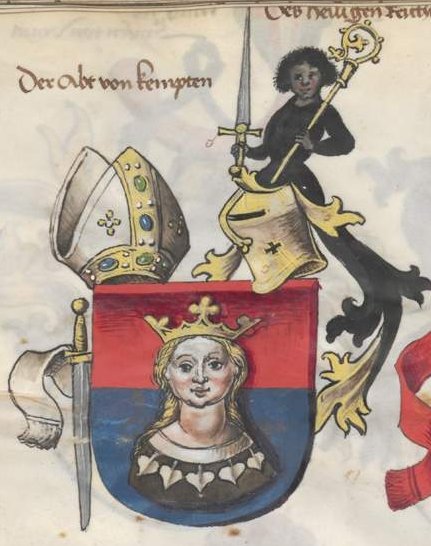 Des heiligen Reichs
Der Abt von kempten